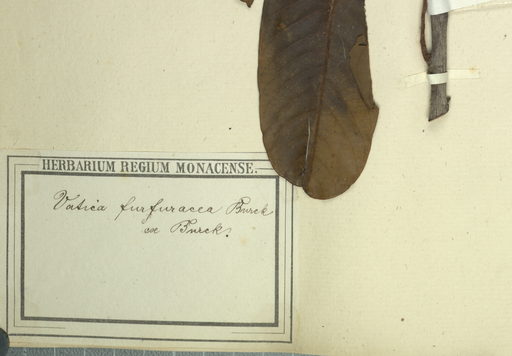 HERBARIUM REGIUM MONACENSE.
Vatica furfuracea Burck
ex Burck.